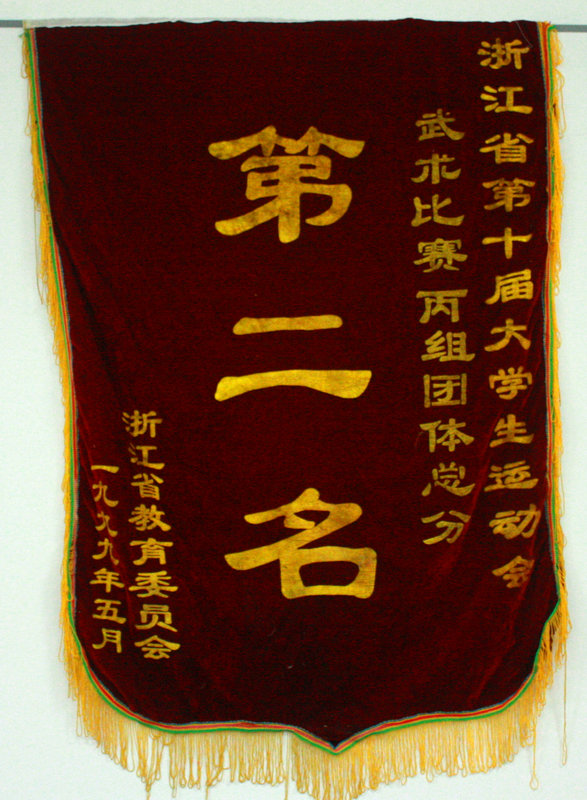 浙江省第十届大学生运动会
武术比赛丙组团体总分
第二名
浙江省教育委员会
一九九九年五月